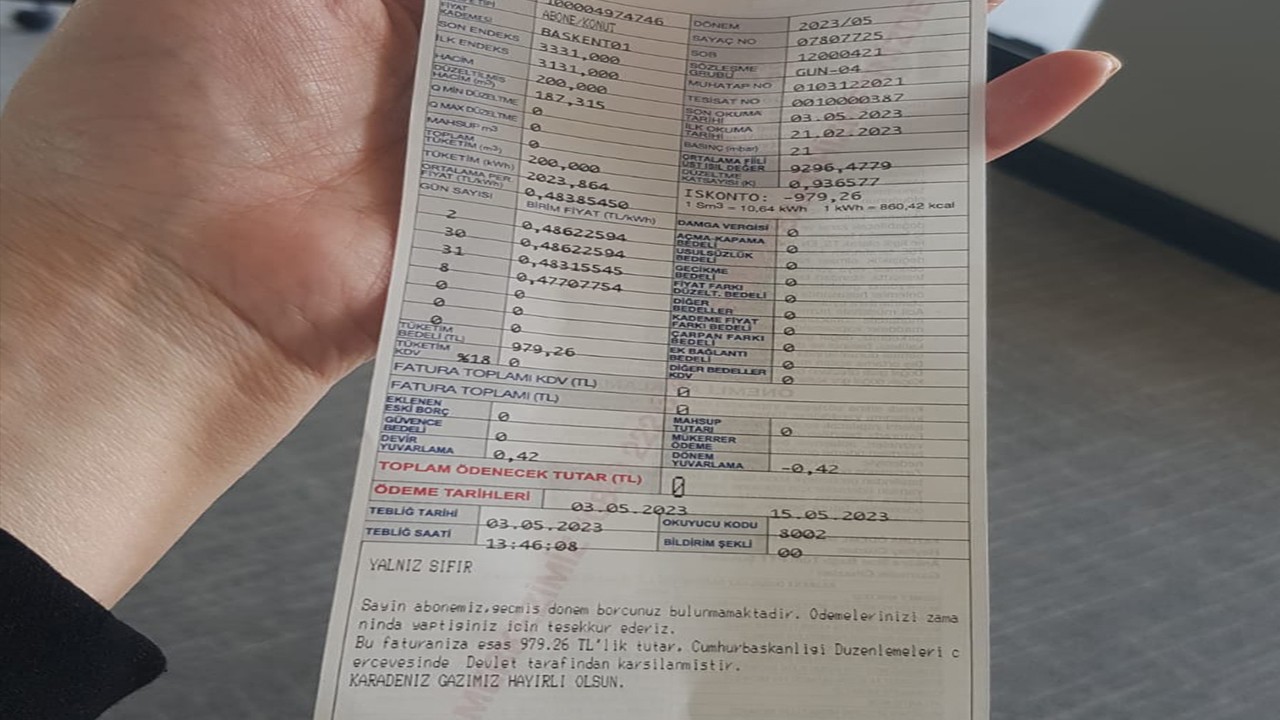 100004974746
FİYAT KADEMESİ ABONE/KONUT
BASKENT01
SON ENDEKS 3331,000
İLK ENDEKS 3131,000
HACİM 200,000
DÜZELTİLMİŞ HACİM (m³) 187,315
Q MİN DÜZELTME 0
Q MAX DÜZELTME 0
MAHSUP m3 0
TOPLAM TÜKETİM (m³) 200,000
TÜKETİM (kWh) 2023,864
ORTALAMA PER. FİYAT (TL/kWh) 0,48385450
GÜN SAYISI BİRİM FİYAT (TL/kWh)
2 0,48622594
30 0,48622594
31 0,48315545
8 0,47707754
0 0
0 0
0 0
TÜKETİM BEDELİ (TL) 979,26
TÜKETİM KDV %18 0
DÖNEM 2023/05
SAYAÇ NO 07807725
SOB 12000421
SÖZLEŞME GRUBU GUN-04
MUHATAP NO 0103122021
TESİSAT NO 0010000387
SON OKUMA TARİHİ 03.05.2023
İLK OKUMA TARİHİ 21.02.2023
BASINÇ (mbar) 21
ORTALAMA FİİLİ ÜST ISIL DEĞER 9296,4779
DÜZELTME KATSAYISI (K) 0,936577
ISKONTO: -979,26
1 Sm3 = 10,64 kWh 1 kWh = 860,42 kcal
DAMGA VERGİSİ 0
AÇMA-KAPAMA BEDELİ 0
USULSÜZLÜK BEDELİ 0
GECİKME BEDELİ 0
FİYAT FARKI DÜZELT. BEDELİ 0
DİĞER BEDELLER 0
KADEME FİYAT FARKI BEDELİ 0
ÇARPAN FARKI BEDELİ 0
EK BAĞLANTI BEDELİ 0
DİĞER BEDELLER KDV 0
FATURA TOPLAMI KDV (TL) 0
FATURA TOPLAMI (TL) 0
EKLENEN ESKİ BORÇ 0
MAHSUP TUTARI 0
GÜVENCE BEDELİ 0
MÜKERRER ÖDEME
DEVİR YUVARLAMA 0,42
DÖNEM YUVARLAMA -0,42
TOPLAM ÖDENECEK TUTAR (TL) 0
ÖDEME TARİHLERİ 03.05.2023 15.05.2023
TEBLİĞ TARİHİ 03.05.2023 OKUYUCU KODU 8002
TEBLİĞ SAATİ 13:46:08 BİLDİRİM ŞEKLİ 00
YALNIZ SIFIR
Sayin abonemiz,gecmis donem borcunuz bulunmamaktadir. Odemelerinizi zama
ninda yaptiginiz icin tesekkur ederiz.
Bu faturaniza esas 979.26 TL'lik tutar, Cumhurbaskanligi Duzenlemeleri c
ercevesinde Devlet tarafindan karsilanmistir.
KARADENIZ GAZIMIZ HAYIRLI OLSUN.